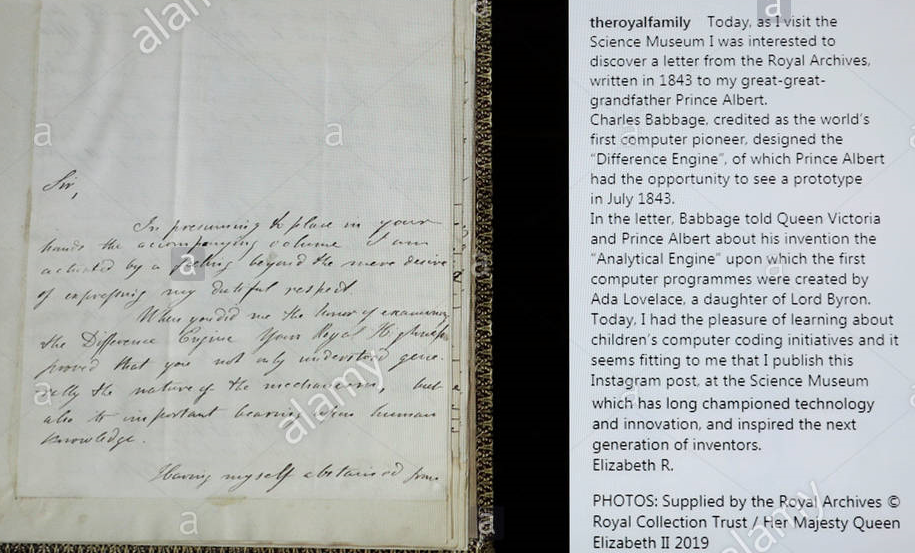 Sir,
In presuming to place in your
hands the accompanying volume I am
actuated by a feeling beyond the mere desire
of expressing my dutiful respect
When you did me the honor of examining
the Difference Engine Your Royal Highness
proved that you not only understood gene-
rally the nature of the mechanism, but
also its important bearing upon human
knowledge.
Having myself abstained from
theroyalfamily Today, as I visit the
Science Museum I was interested to
discover a letter from the Royal Archives,
written in 1843 to my great-great-
grandfather Prince Albert.
Charles Babbage, credited as the world's
first computer pioneer, designed the
"Difference Engine", of which Prince Albert
had the opportunity to see a prototype
in July 1843.
In the letter, Babbage told Queen Victoria
and Prince Albert about his invention the
"Analytical Engine" upon which the first
computer programmes were created by
Ada Lovelace, a daughter of Lord Byron.
Today, I had the pleasure of learning about
children's computer coding initiatives and it
seems fitting to me that I publish this
Instagram post, at the Science Museum
which has long championed technology
and innovation, and inspired the next
generation of inventors.
Elizabeth R.
PHOTOS: Supplied by the Royal Archives ©
Royal Collection Trust / Her Majesty Queen
Elizabeth II 2019
alamy
a
a
alamy
a
alamy
a
alamy